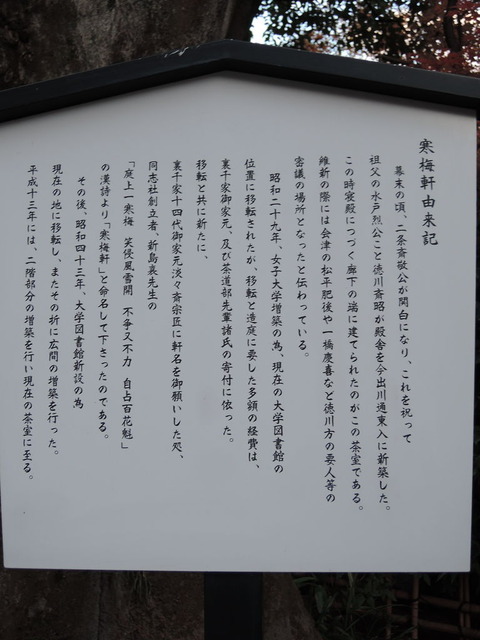 寒梅軒由来記
幕末の頃、二条斉敬公が関白になり、これを祝って
祖父の水戸烈公こと徳川斉昭が殿舎を今出川通東入に新築した。
この時寝殿につづく廊下の端に建てられたのがこの茶室である。
維新の際には会津の松平肥後や一橋慶喜など徳川方の要人等の
密議の場所となったと伝わっている。
昭和二十九年、女子大学増築の為、現在の大学図書館の
位置に移転されたが、移転と造庭に要した多額の経費は、
裏千家御家元、及び茶道部先輩諸氏の寄付に依った。
移転と共に新たに、
裏千家十四代御家元淡々斎宗匠に軒名を御願いした処、
同志社創立者、新島襄先生の
「庭上一寒梅 笑侵風雪開 不争又不力 自占百花魁」
の漢詩より「寒梅軒」と命名して下さったのである。
その後、昭和四十三年、大学図書館新設の為
現在の地に移転し、またその折に広間の増築を行った。
平成十三年には、二階部分の増築を行い現在の茶室に至る。